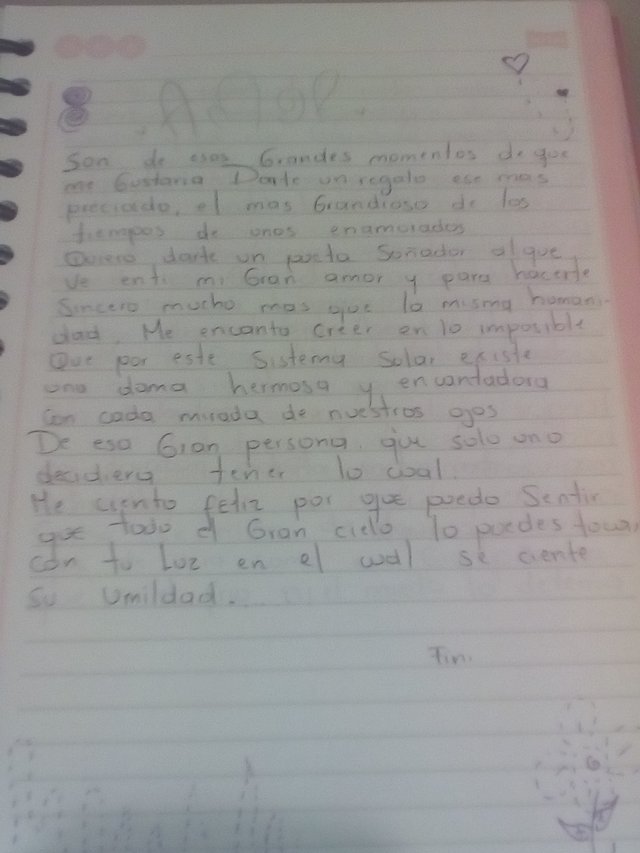 8 Amor.
Son de esos Grandes momentos de que
me Gustaria Darte un regalo ese mas
preciado, el mas Grandioso de los
tiempos de unos enamorados
Quiero darte un poeta Soñador al que
Ve en ti mi Gran amor y para hacerte
Sincero mucho mas que la misma humani-
dad. Me encanta creer en lo imposible
Que por este Sistema Solar existe
una dama hermosa y encantadora
Con cada mirada de nuestros ojos
De esa Gran persona que solo uno
decidiera tener lo cual.
Me ciento feliz por que puedo Sentir
que todo el Gran cielo lo puedes tocar
con tu Luz en el cual se ciente
su umildad.
Fin.